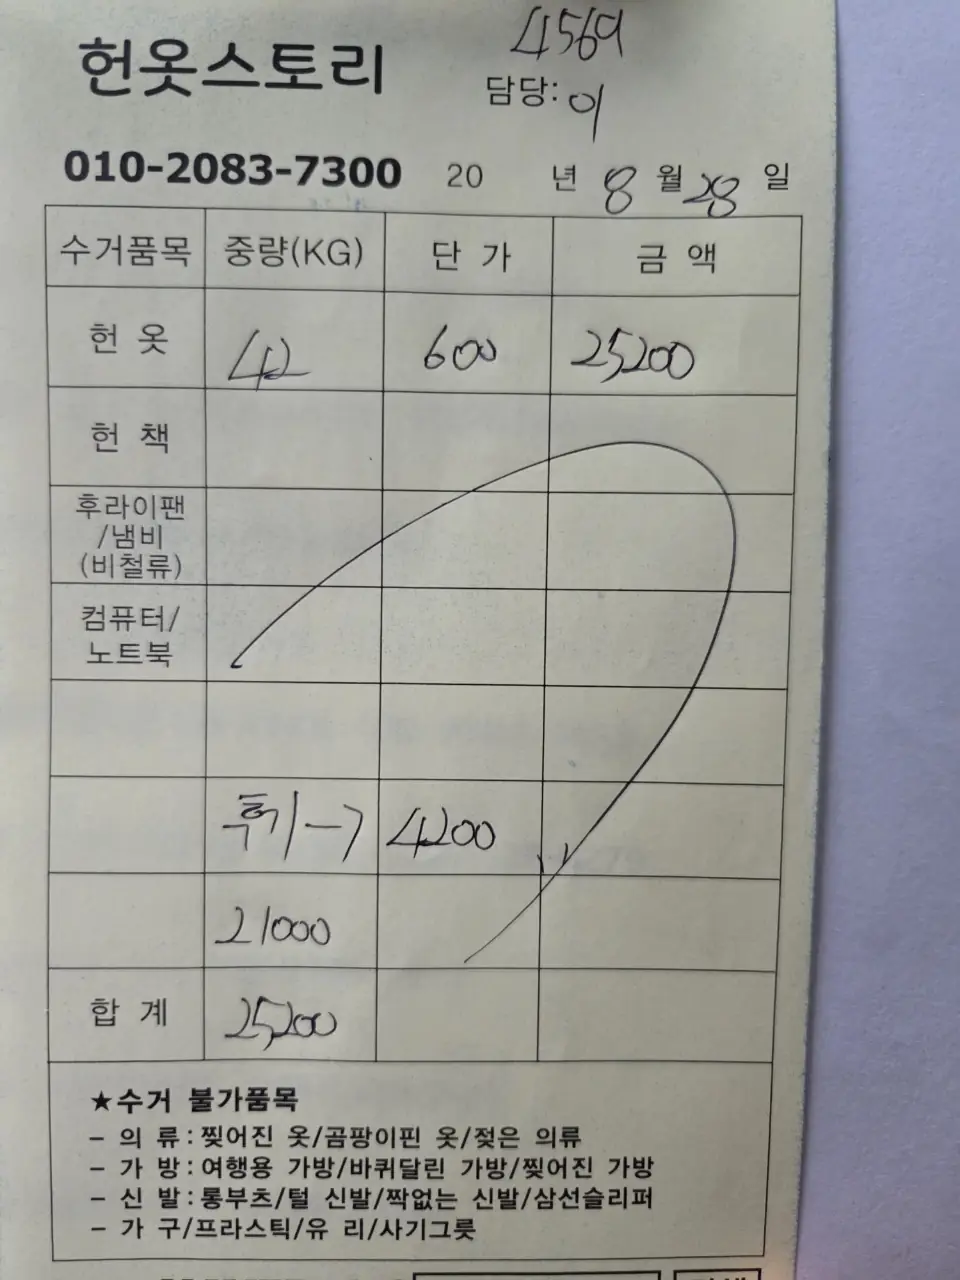 4569
헌옷스토리
담당: 이
010-2083-7300 20 년 8 월 28 일
수거품목 중량(KG) 단 가 금 액
헌 옷 42 600 25200
헌 책
후라이팬
/냄비
(비철류)
컴퓨터/
노트북
후기 → 4200
21000
합 계 25,200
★수거 불가품목
- 의 류:찢어진 옷/곰팡이핀 옷/젖은 의류
- 가 방:여행용 가방/바퀴달린 가방/찢어진 가방
- 신 발:롱부츠/털 신발/짝없는 신발/삼선슬리퍼
- 가 구/프라스틱/유 리/사기그릇